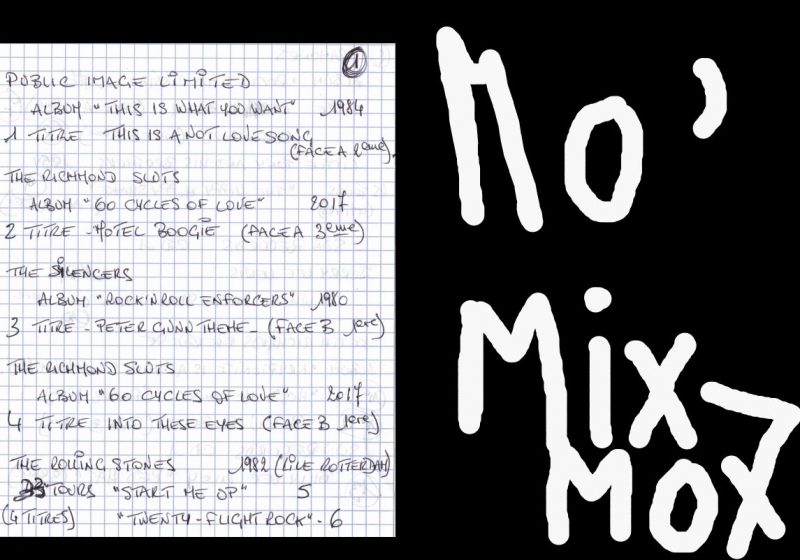 1
PUBLIC IMAGE LIMITED
ALBUM "THIS IS WHAT YOU WANT" 1984
1 TITRE THIS IS A NOT LOVE SONG
(FACE A 2eme).
THE RICHMOND SLUTS
ALBUM "60 CYCLES OF LOVE" 2017
2 TITRE - HOTEL BOOGIE (FACE A 3eme)
THE SILENCERS
ALBUM "ROCK'N ROLL ENFORCERS" 1980
3 TITRE - PETER GUNN THEME - (FACE B 1ere)
THE RICHMOND SLUTS
ALBUM "60 CYCLES OF LOVE" 2017
4 TITRE INTO THESE EYES (FACE B 1ere)
THE ROLLING STONES 1982 (LIVE ROTTERDAM)
33 TOURS "START ME UP" 5
(4 TITRES) "TWENTY-FLIGHT ROCK" - 6
Mo'
Mix
Mox 7